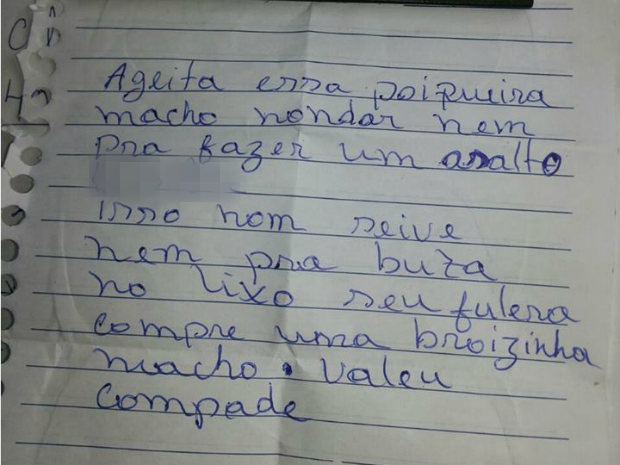 Ageita essa poiqueira
macho nondar nem
pra fazer um asalto
isso nom seive
nem pra buza
no lixo seu fulera
compre uma broizinha
macho. valeu
compade